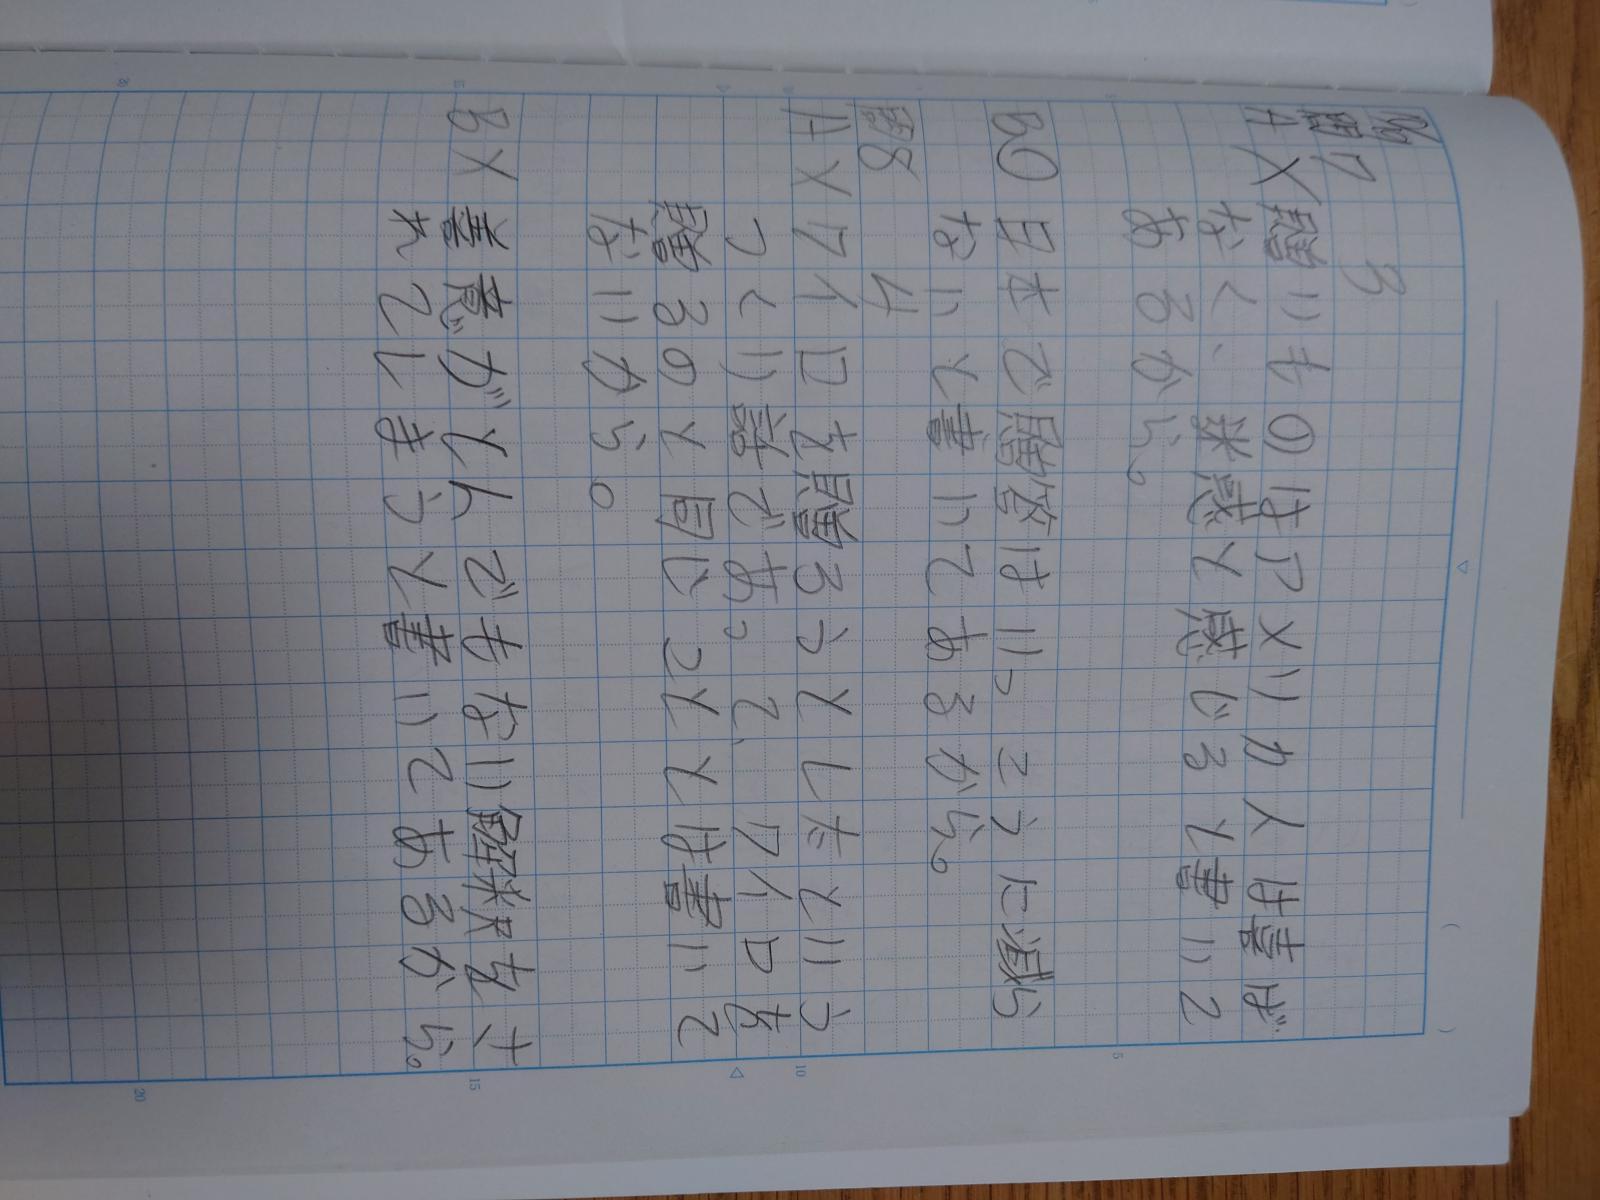 問7 3
A×贈りものはアメリカ人は喜ば
なく、迷惑と感じると書いて
あるから。
B○日本で贈答はいっこうに減ら
ないと書いてあるから。
問8 4
A×ワイロを贈ろうとしたという
つくり話であって、ワイロを
贈るのと同じこととは書いて
ないから。
B×善意がとんでもない解釈をさ
れてしまうと書いてあるから。
5
10
15
20